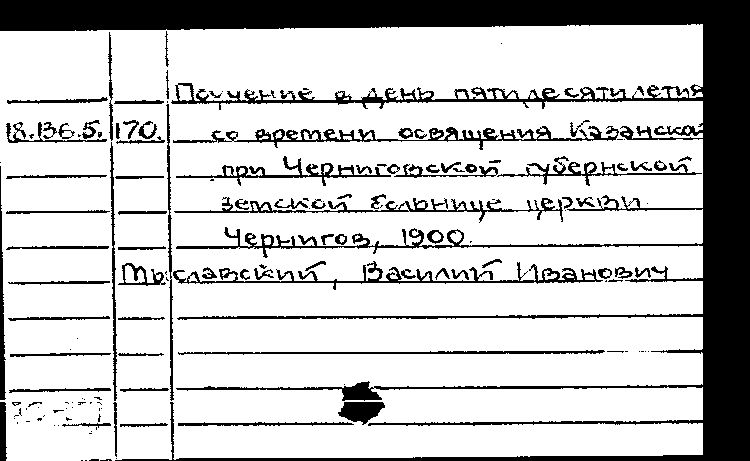 Поучение в день пятидесятилетия
18.136.5. 170. со времени освящения Казанской
при Черниговской губернской
земской больнице церкви.
Чернигов, 1900.
Мыславский, Василий Иванович